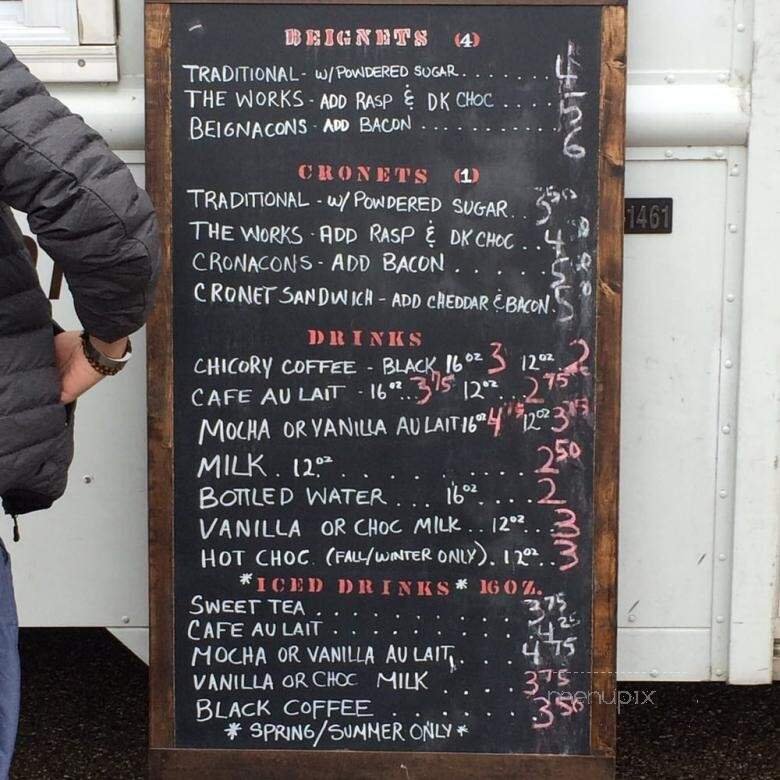 BEIGNETS (4)
TRADITIONAL - W/POWDERED SUGAR........ 4
THE WORKS - ADD RASP & DK CHOC..... 5
BEIGNACONS - ADD BACON............ 6
CRONETS (1)
TRADITIONAL - W/POWDERED SUGAR.. 3.50
THE WORKS - ADD RASP & DK CHOC.. 4
CRONACONS - ADD BACON...... 5
CRONET SANDWICH - ADD CHEDDAR & BACON. 5
DRINKS
CHICORY COFFEE - BLACK 16oz 3 12oz 2
CAFE AU LAIT - 16oz... 3 75 12oz... 2 75
MOCHA OR VANILLA AU LAIT 16oz 4 75 12oz 3 75
MILK. 12oz.......... 2 50
BOTTLED WATER... 16oz.... 2
VANILLA OR CHOC MILK.. 12oz... 3
HOT CHOC. (FALL/WINTER ONLY). 12oz.. 3
*ICED DRINKS* 16OZ.
SWEET TEA............ 3 75
CAFE AU LAIT........... 4 25
MOCHA OR VANILLA AU LAIT.... 4 75
VANILLA OR CHOC MILK..... 3 75
BLACK COFFEE.......... 3 50
* SPRING/SUMMER ONLY *
1461
menupix